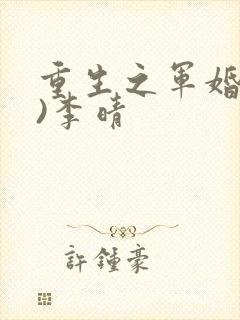 重生之军婚
)李晴
許鍾豪